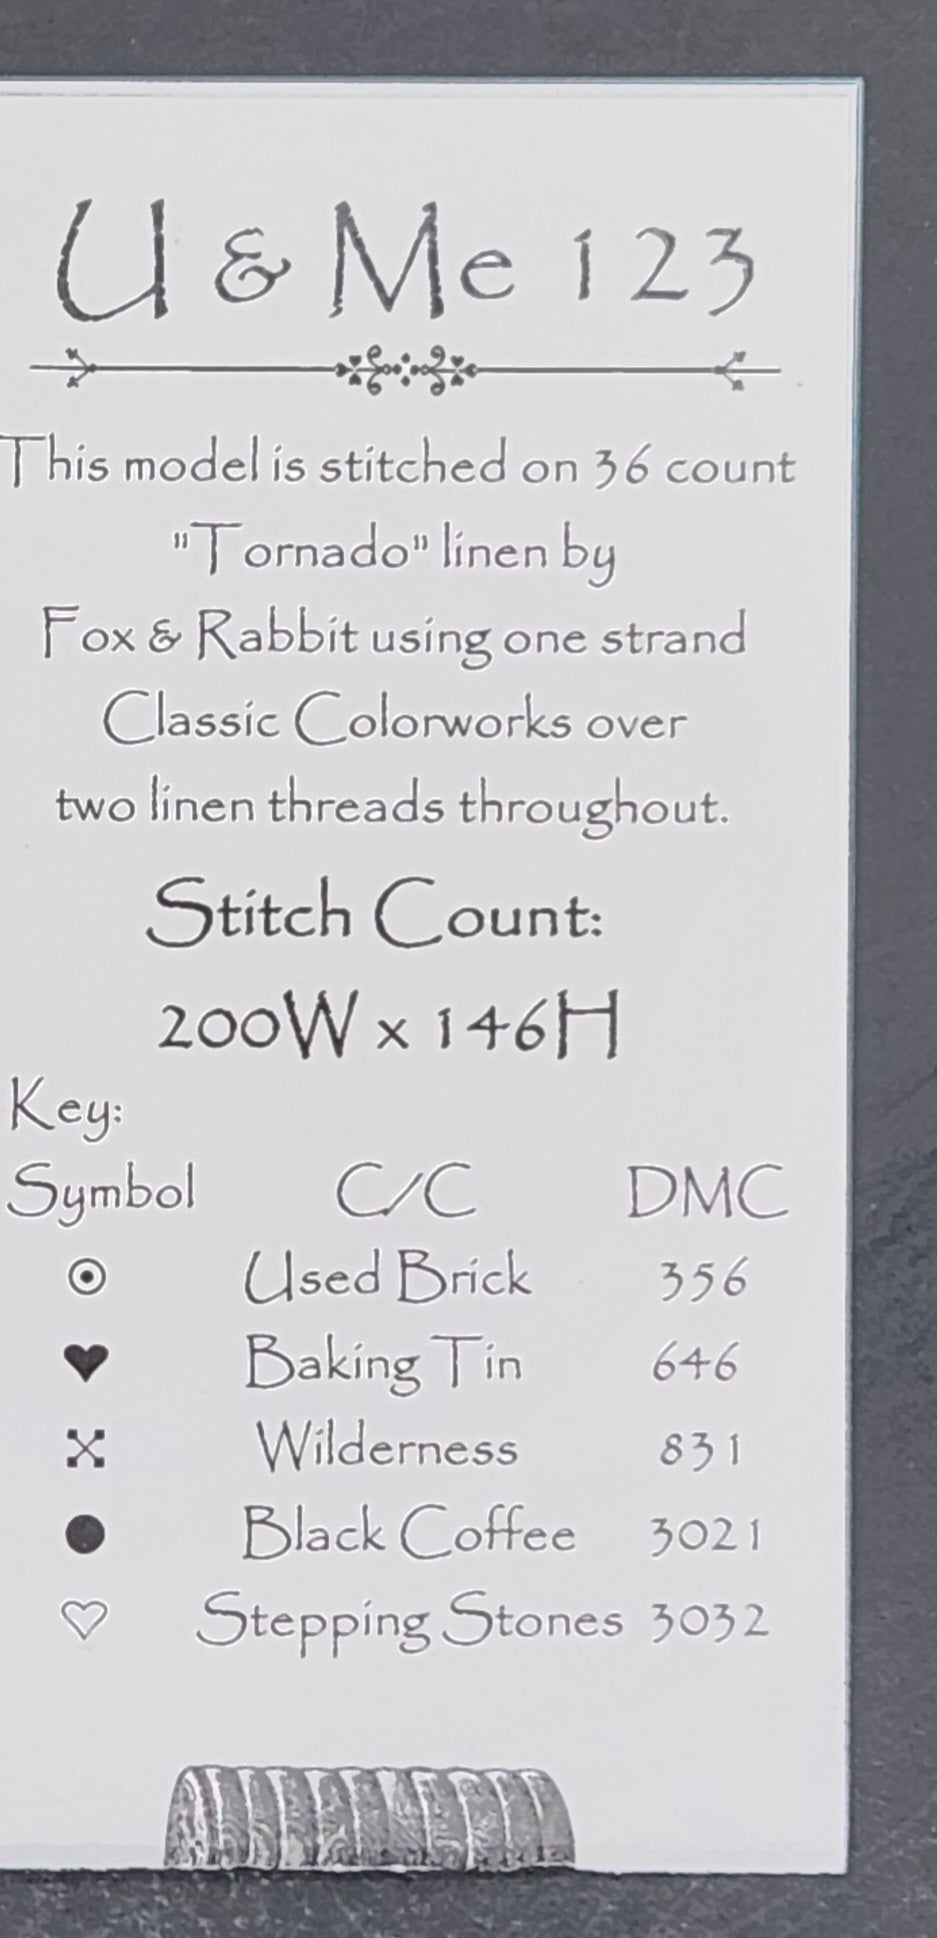 U & Me 123
This model is stitched on 36 count
"Tornado" linen by
Fox & Rabbit using one strand
Classic Colorworks over
two linen threads throughout.
Stitch Count:
200W x 146H
Key:
Symbol C/C DMC
Used Brick 356
Baking Tin 646
Wilderness 831
Black Coffee 3021
Stepping Stones 3032